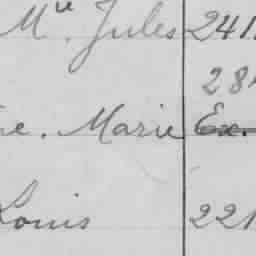 Mr. Jules 241
28
e. Marie Ex.
Louis 221